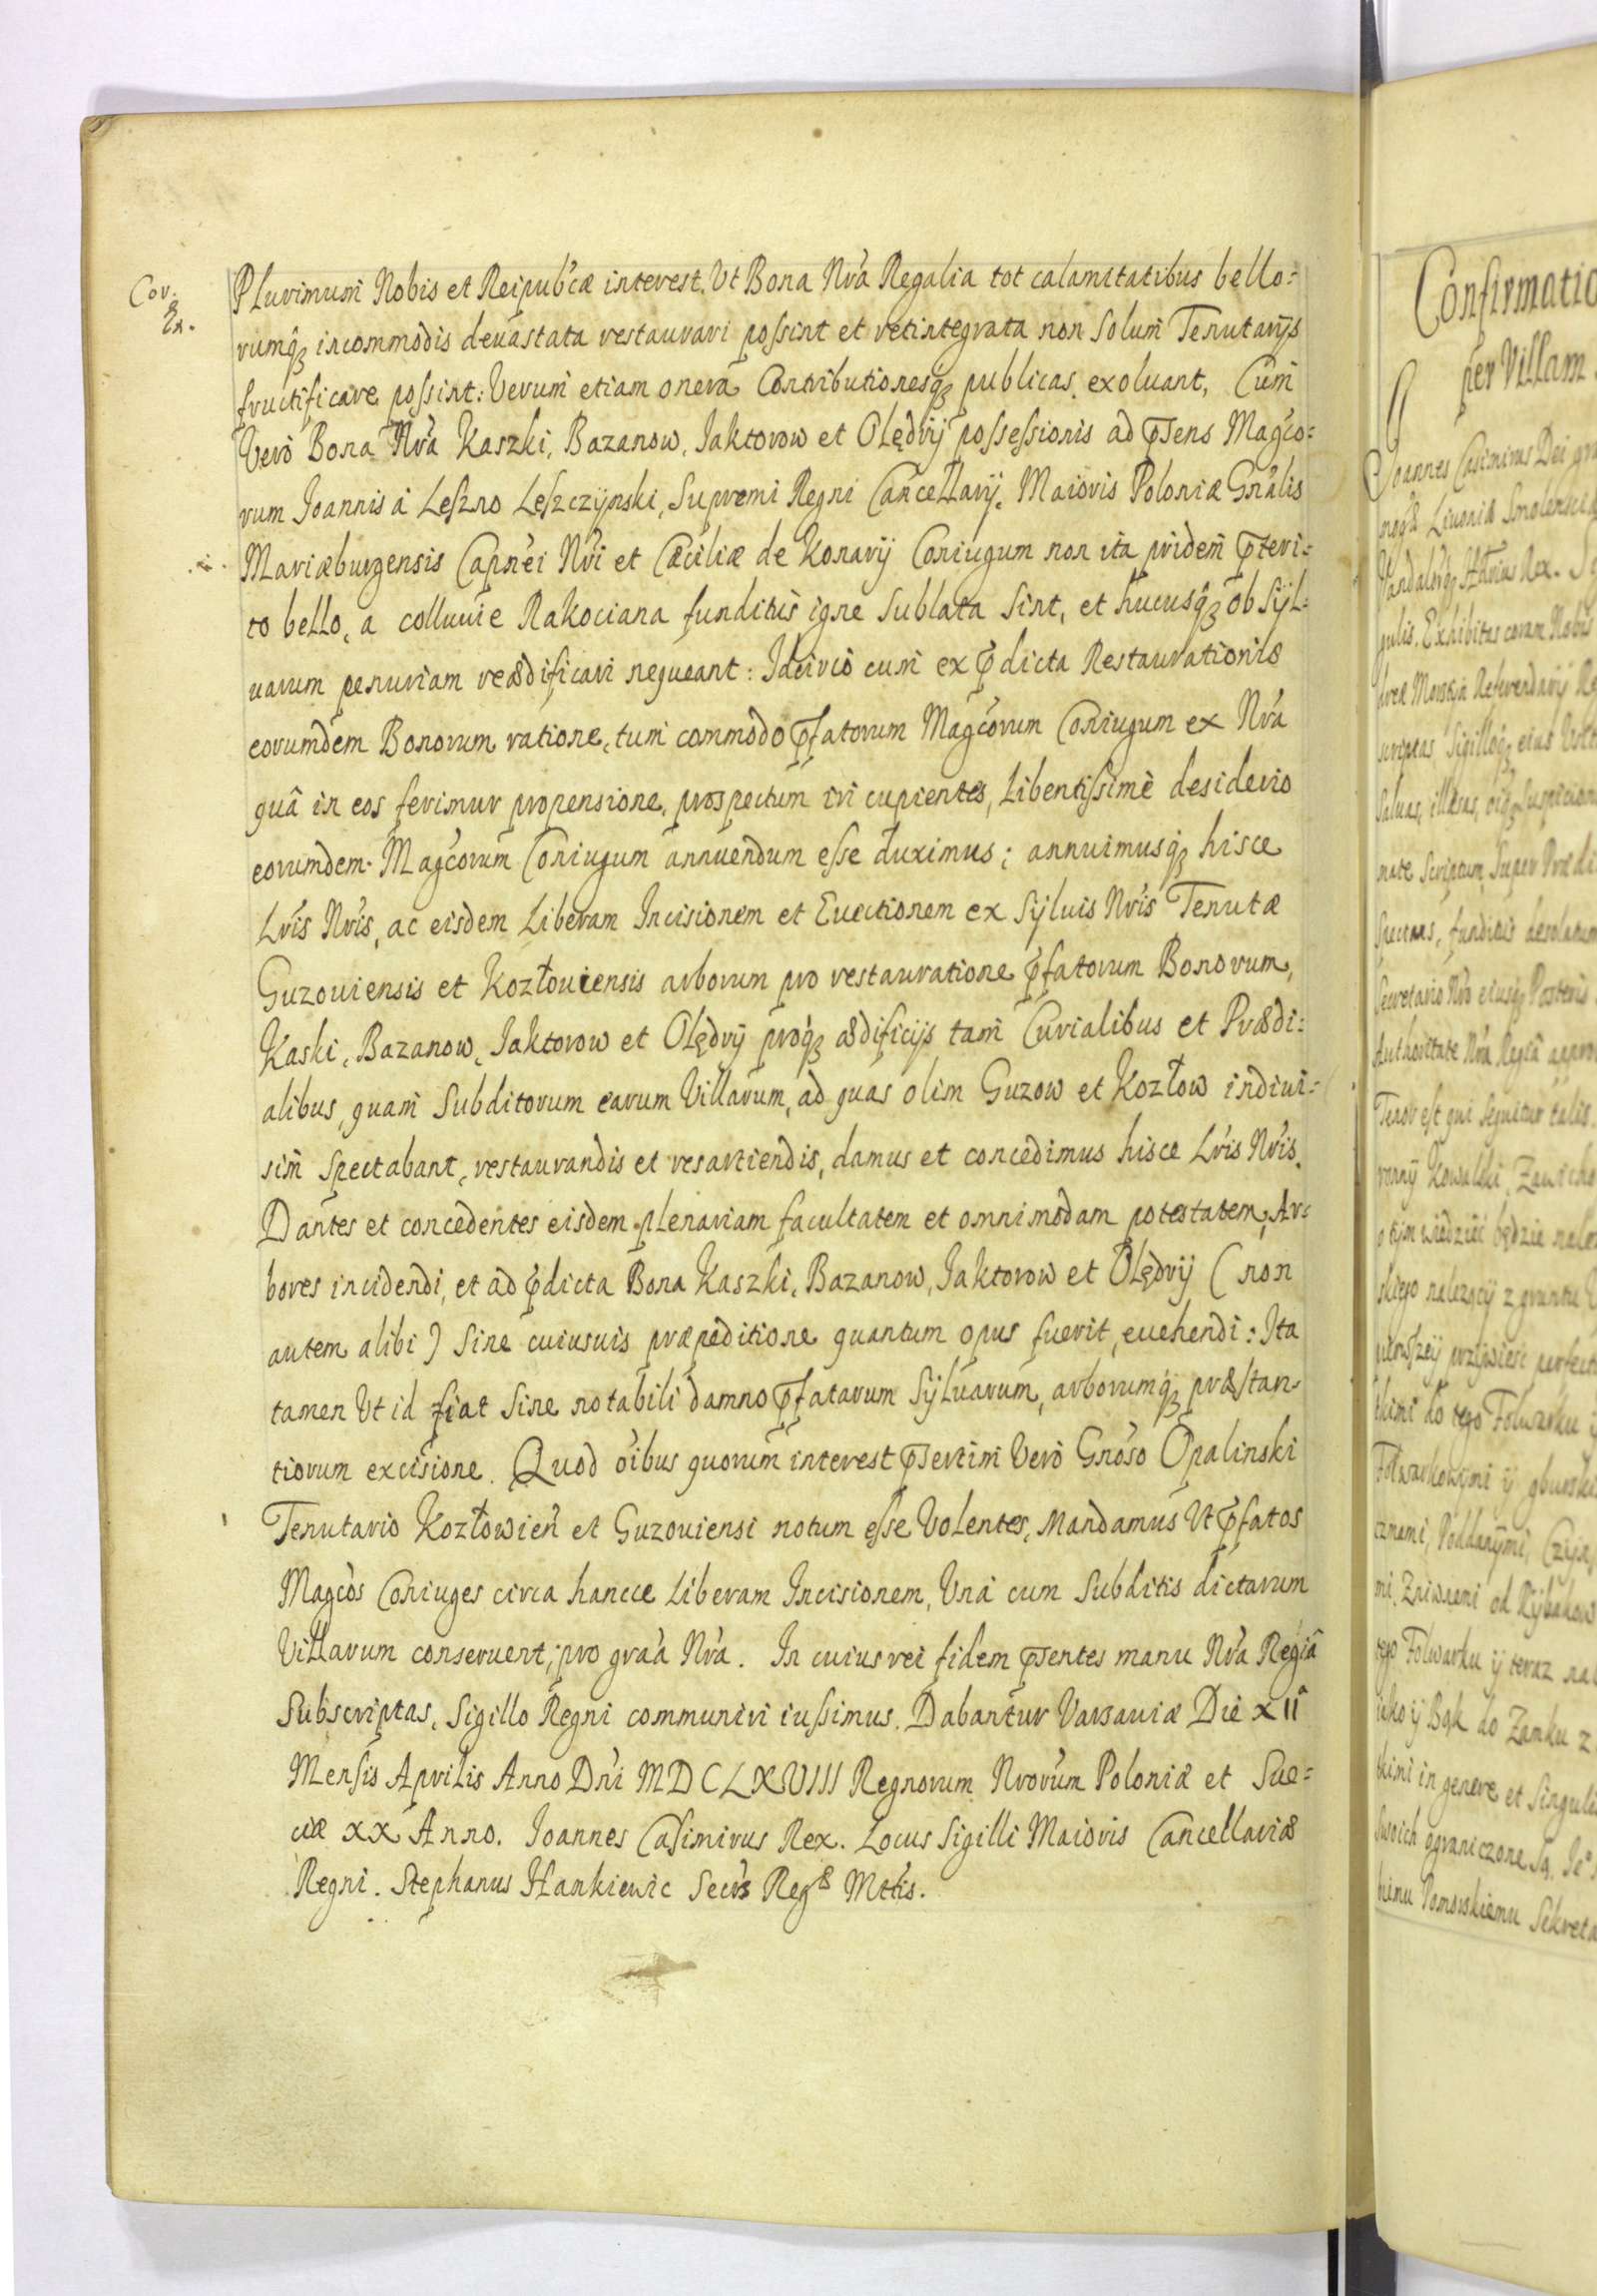 Cor.
&
Ex.
Plurimum Nobis et Reipub'cæ interest. Vt Bona Nr'a Regalia tot calamitatibus bello=
rumq3 incommodis deuastata restaurari possint et retintegrata non solum Tenutarijs
fructificare possint: Verum etiam onera Contributionesq3 publicas exoluant, Cum
Verò Bona Nr'a Kaszki, Bazanow, Iaktorow et Olędrij possessionis ad p̃sens Mag'co=
rum Ioannis à Leszno Leszczÿnski, Supremi Regni Cancellarij. Maioris Poloniæ Gn'alis
Mariæburgensis Capn'ei Nr'i et Cæciliæ de Konarÿ Coniugum non ita pridem p̃teri=
to bello, a colluuie Rakociana funditùs igne sublata sint, et hucusq3 ob Sÿl=
uarum penuriam reædificari nequeant: Idcirco cum ex p̃dicta Restaurationis
eorumdem Bonorum ratione, tum commodo p̃fatorum Mag'corum Coniugum ex Nr'a
quâ in eos ferimur propensione, prospectum iri cupientes, Libentissimè desiderio
eorumdem Mag'corum Coniugum annuendum esse duximus; annuimusq3 hisce
Lr'is Nr'is, ac eisdem Liberam Incisionem et Euectionem ex Sÿluis Nr'is Tenutæ
Guzouiensis et Kozłouiensis arborum pro restauratione p̃fatorum Bonorum,
Kaski, Bazanow, Iaktorow et Olędrÿ proq3 ædificijs tam Curialibus et Prædi=
alibus, quam Subditorum earum Villarum, ad quas olim Guzow et Kozłow indiui=
sim spectabant, restaurandis et resarciendis, damus et concedimus hisce Lr'is Nr'is.
Dantes et concedentes eisdem plenariam facultatem et omnimodam potestatem, Ar=
bores incidendi, et ad p̃dicta Bona Kaszki, Bazanow, Iaktorow et Olędrÿ (non
autem alibi) sine cuiusuis præpeditione quantum opus fuerit, euehendi: Ita
tamen Vt id fiat sine notabili damno p̃fatarum Sÿluarum, arborumq3 præstan=
tiorum excisione. Quod o'ibus quorum interest p̃sertim Verò Gn'oso Opalinski
Tenutario Kozłowien' et Guzouiensi notum esse Volentes, Mandamus Vt p̃fatos
Mag'cos Coniuges circa hancce Liberam Incisionem, Vnà cum Subditis dictarum
Villarum conseruent, pro gra'a Nr'a. In cuius rei fidem p̃sentes manu Nr'a Regiâ
Subscriptas, Sigillo Regni communiri iussimus. Dabantur Varsauiæ Die XIIª
Mensis Aprilis Anno Dn'i MDCLXVIII Regnorum Nror'um Poloniæ et Sue=
ciæ XX Anno. Ioannes Casimirus Rex. Locus Sigilli Maioris Cancellariæ
Regni. Stephanus Hankiewic Secr's Regæ Mttis.
Confirmatio
per Villam
Joannes Casimirus Dei gra
Liuoniæ Smolensciæ
Rex.
gulis. Exhibitas coram Nobis
Referendarij Re
Sigilloq3 eius
Saluas, illæsas,
Scriptum, Super Prædi
funditùs desolatum
Secretario Nr'o eiusq3 Posteris
Authoritate Nr'a Regiâ appro
Tenor est qui sequitur talis.
Kowalski,
o tÿm wiedzieć będzie nale
skiego nalezącÿ z gruntu
do tego Folwarku
Folwarkowÿmi ÿ
Poddanÿmi,
od Rÿbakow
tego Folwarku ÿ teraz na
do Zamku z
in genere et Singuli
Swoich ograniczone
Sekreta